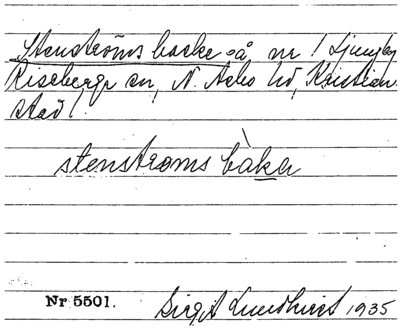 Stenströms backe på nr 1 Ljungby
Riseberga sn, N. Åsbo hd, Kristian
stad l.
stenstrœms bàka
Nr 5501.
Birgit Lundkvist 1935